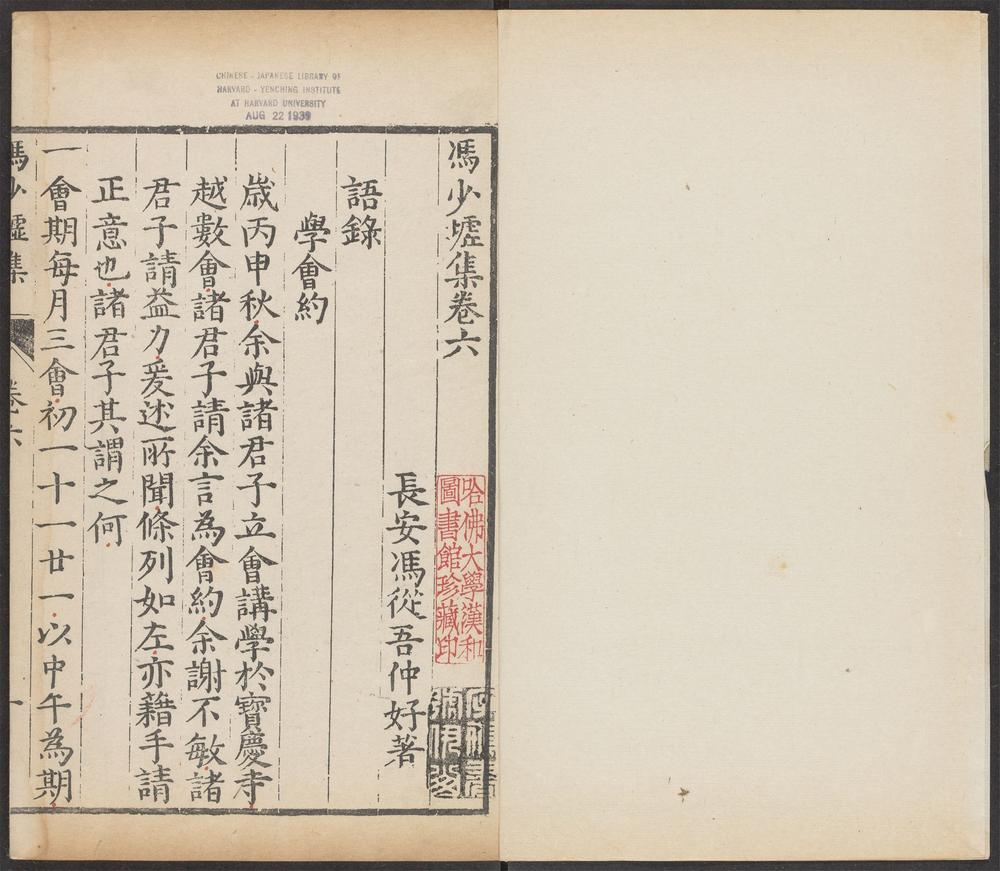 CHINESE - JAPANESE LIBRARY OF
HARVARD - YENCHING INSTITUTE
AT HARVARD UNIVERSITY
AUG 22 1939
馮少墟集卷六
哈佛大學漢和
圖書館珍藏印
長安馮從吾仲好著
語錄
學會約
歲丙申秋余與諸君子立會講學於寶慶寺
越數會諸君子請余言為會約余謝不敏諸
君子請益力爰述所聞條列如左亦藉手請
正意也諸君子其謂之何
一會期每月三會初一十一廿一以中午為期
馮少墟集
卷六
一